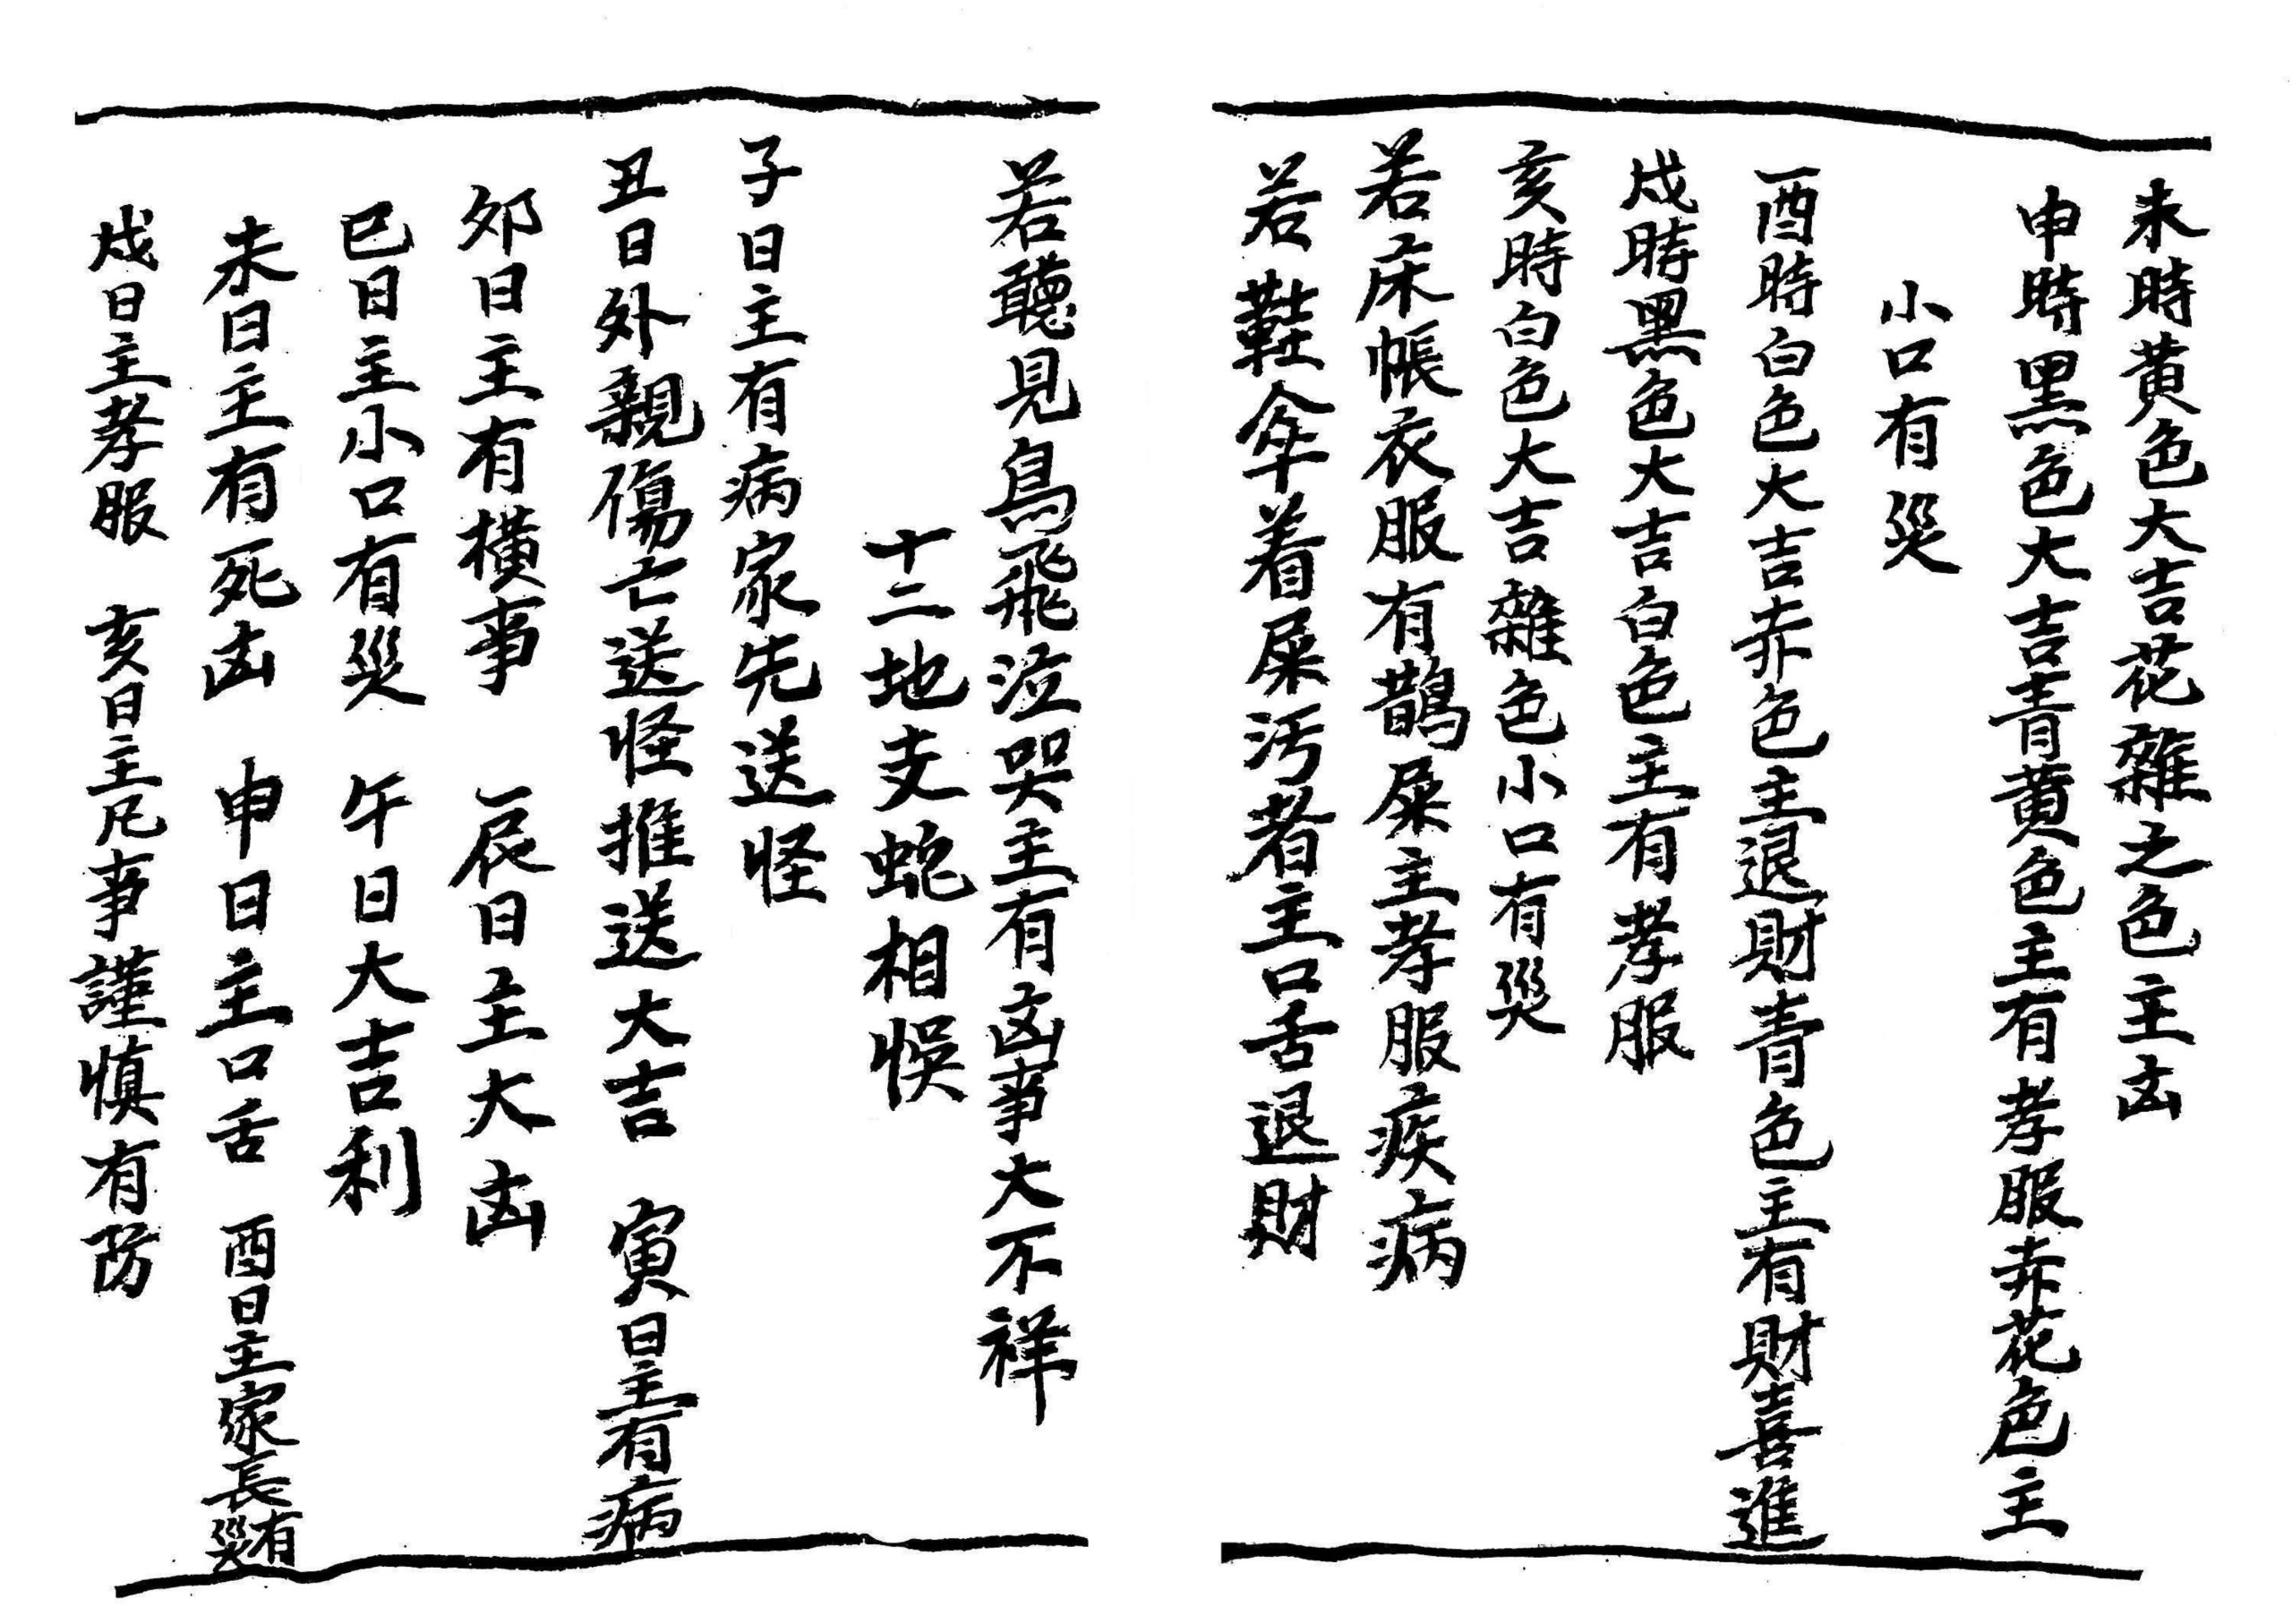 未時黃色大吉花雜之色主凶
申時黑色大吉青黃色主有孝服赤花色主
小口有災
酉時白色大吉赤色主退財青色主有財喜進
戌時黑色大吉白色主有孝服
亥時白色大吉雜色小口有災
若床帳衣服有鵲屎主孝服疾病
若鞋傘着屎汚者主口舌退財
若聽見鳥飛泣哭主有凶事大不祥
十二地支蛇相悞
子日主有病家先送怪
丑日外親傷亡送怪推送大吉 寅日主有病
卯日主有橫事 辰日主大凶
巳日主小口有災 午日大吉利
未日主有死凶 申日主口舌 酉日主家長有災
戌日主孝服 亥日主凡事謹慎有防